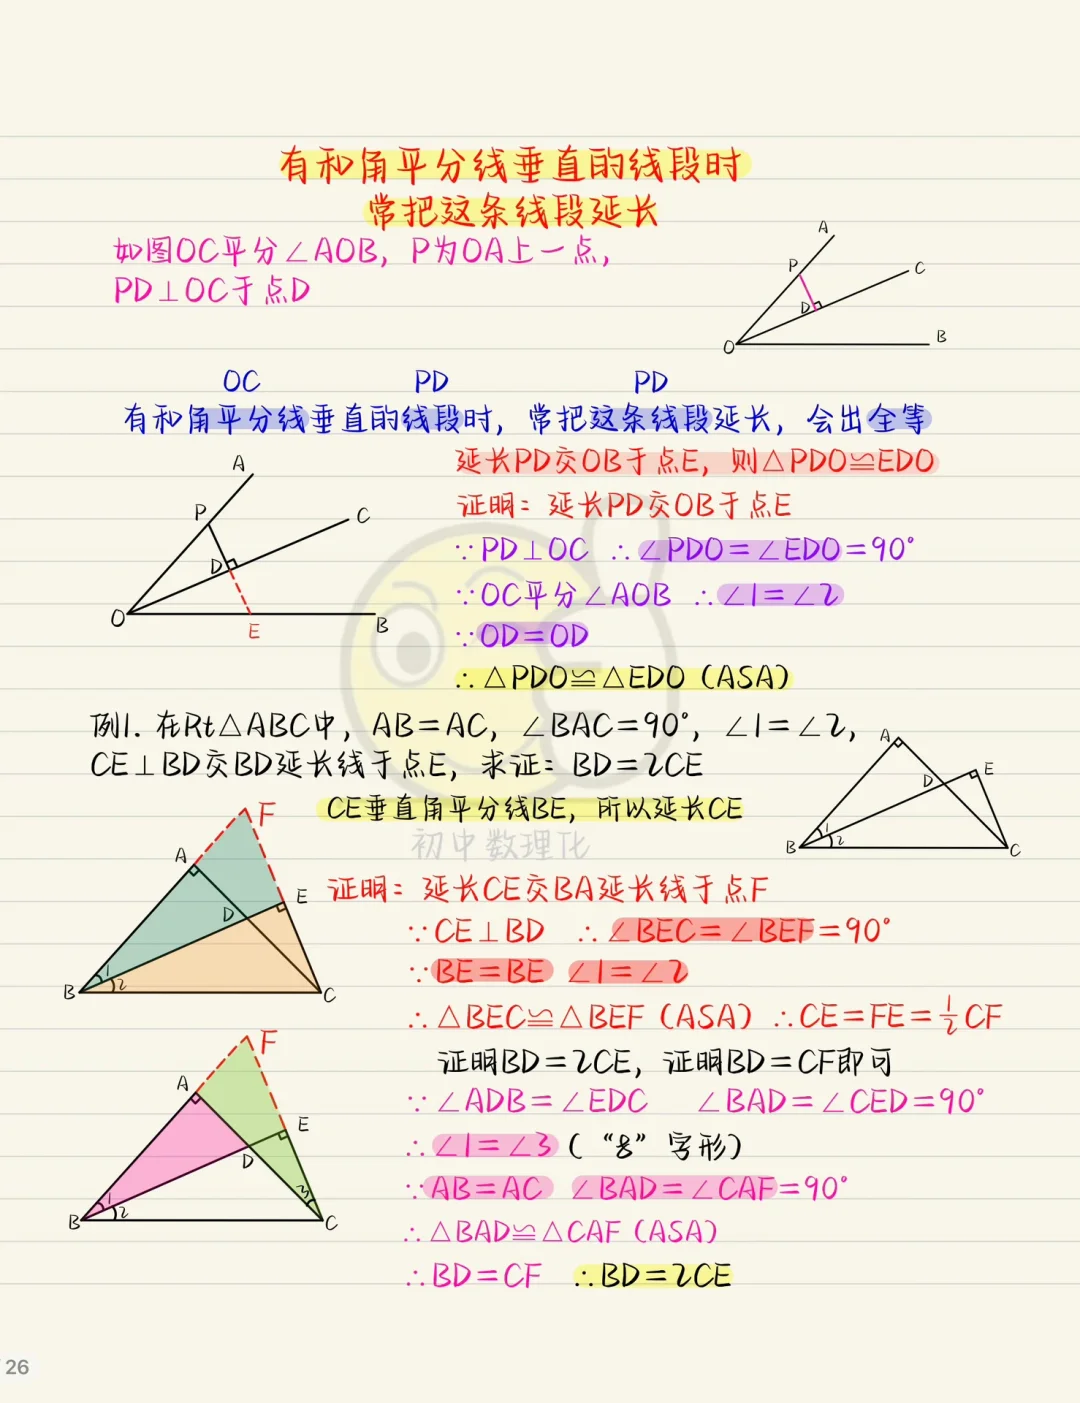 有和角平分线垂直的线段时
常把这条线段延长
如图OC平分∠AOB, P为OA上一点,
PD⊥OC于点D
A
P
C
D
O
B
OC PD PD
有和角平分线垂直的线段时, 常把这条线段延长, 会出全等
延长PD交OB于点E, 则△PDO≌EDO
证明: 延长PD交OB于点E
∵PD⊥OC ∴∠PDO=∠EDO=90°
∵OC平分∠AOB ∴∠1=∠2
∵OD=OD
∴△PDO≌△EDO (ASA)
A
P
C
D
O
E
B
例1. 在Rt△ABC中, AB=AC, ∠BAC=90°, ∠1=∠2,
CE⊥BD交BD延长线于点E, 求证: BD=2CE
CE垂直角平分线BE, 所以延长CE
初中数理化
A
D
E
1
2
B
C
证明: 延长CE交BA延长线于点F
∵CE⊥BD ∴∠BEC=∠BEF=90°
∵BE=BE ∠1=∠2
∴△BEC≌△BEF (ASA) ∴CE=FE=1/2CF
F
A
E
D
1
2
B
C
证明BD=2CE, 证明BD=CF即可
∵∠ADB=∠EDC ∠BAD=∠CED=90°
∴∠1=∠3 (“8”字形)
∵AB=AC ∠BAD=∠CAF=90°
∴△BAD≌△CAF (ASA)
∴BD=CF ∴BD=2CE
F
A
E
D
1
2
3
B
C
26